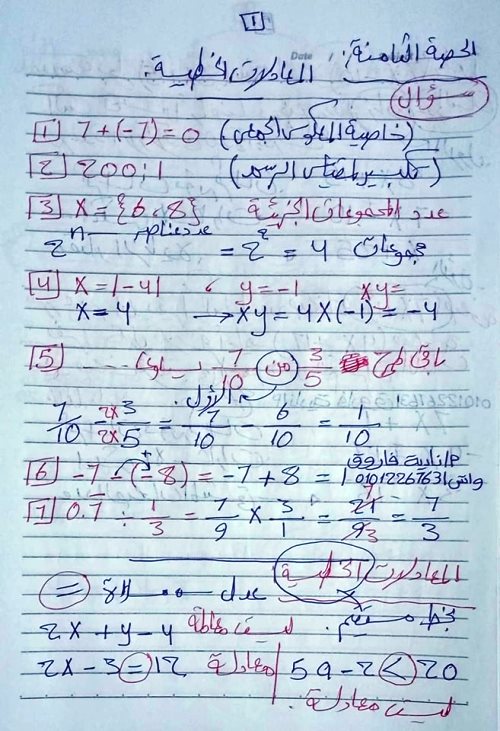 1
الحصة الثامنة: المعادلات الخطية. Date
سؤال
1 7 + (-7) = 0 (خاصية المعكوس الجمعي)
2 200 : 1 (تكبير مقياس الرسم)
3 X = {6, 8} عدد المجموعات الجزئية
2ⁿ عدد عناصر = 2² = 4 مجموعات
4 X = |-4| ، y = -1 xy =
X = 4 → xy = 4 X (-1) = -4
5 باقي طرح 3/5 من 7/10 يساوي ...
الأول
7/10 - 2x3/2x5 = 7/10 - 6/10 = 1/10
6 -7 - (-8) = -7 + 8 = 1
أ/ نادية فاروق
واتس 01012267631
7 0.7 ÷ 1/3 = 7/9 X 3/1 = 21/9 3 = 7/3
المعادلات الخطية
=
خط مستقيم.
2X + y - 4 ليست معادلة
2X - 3 = 12 معادلة
5a - 2 < 20
ليست معادلة.